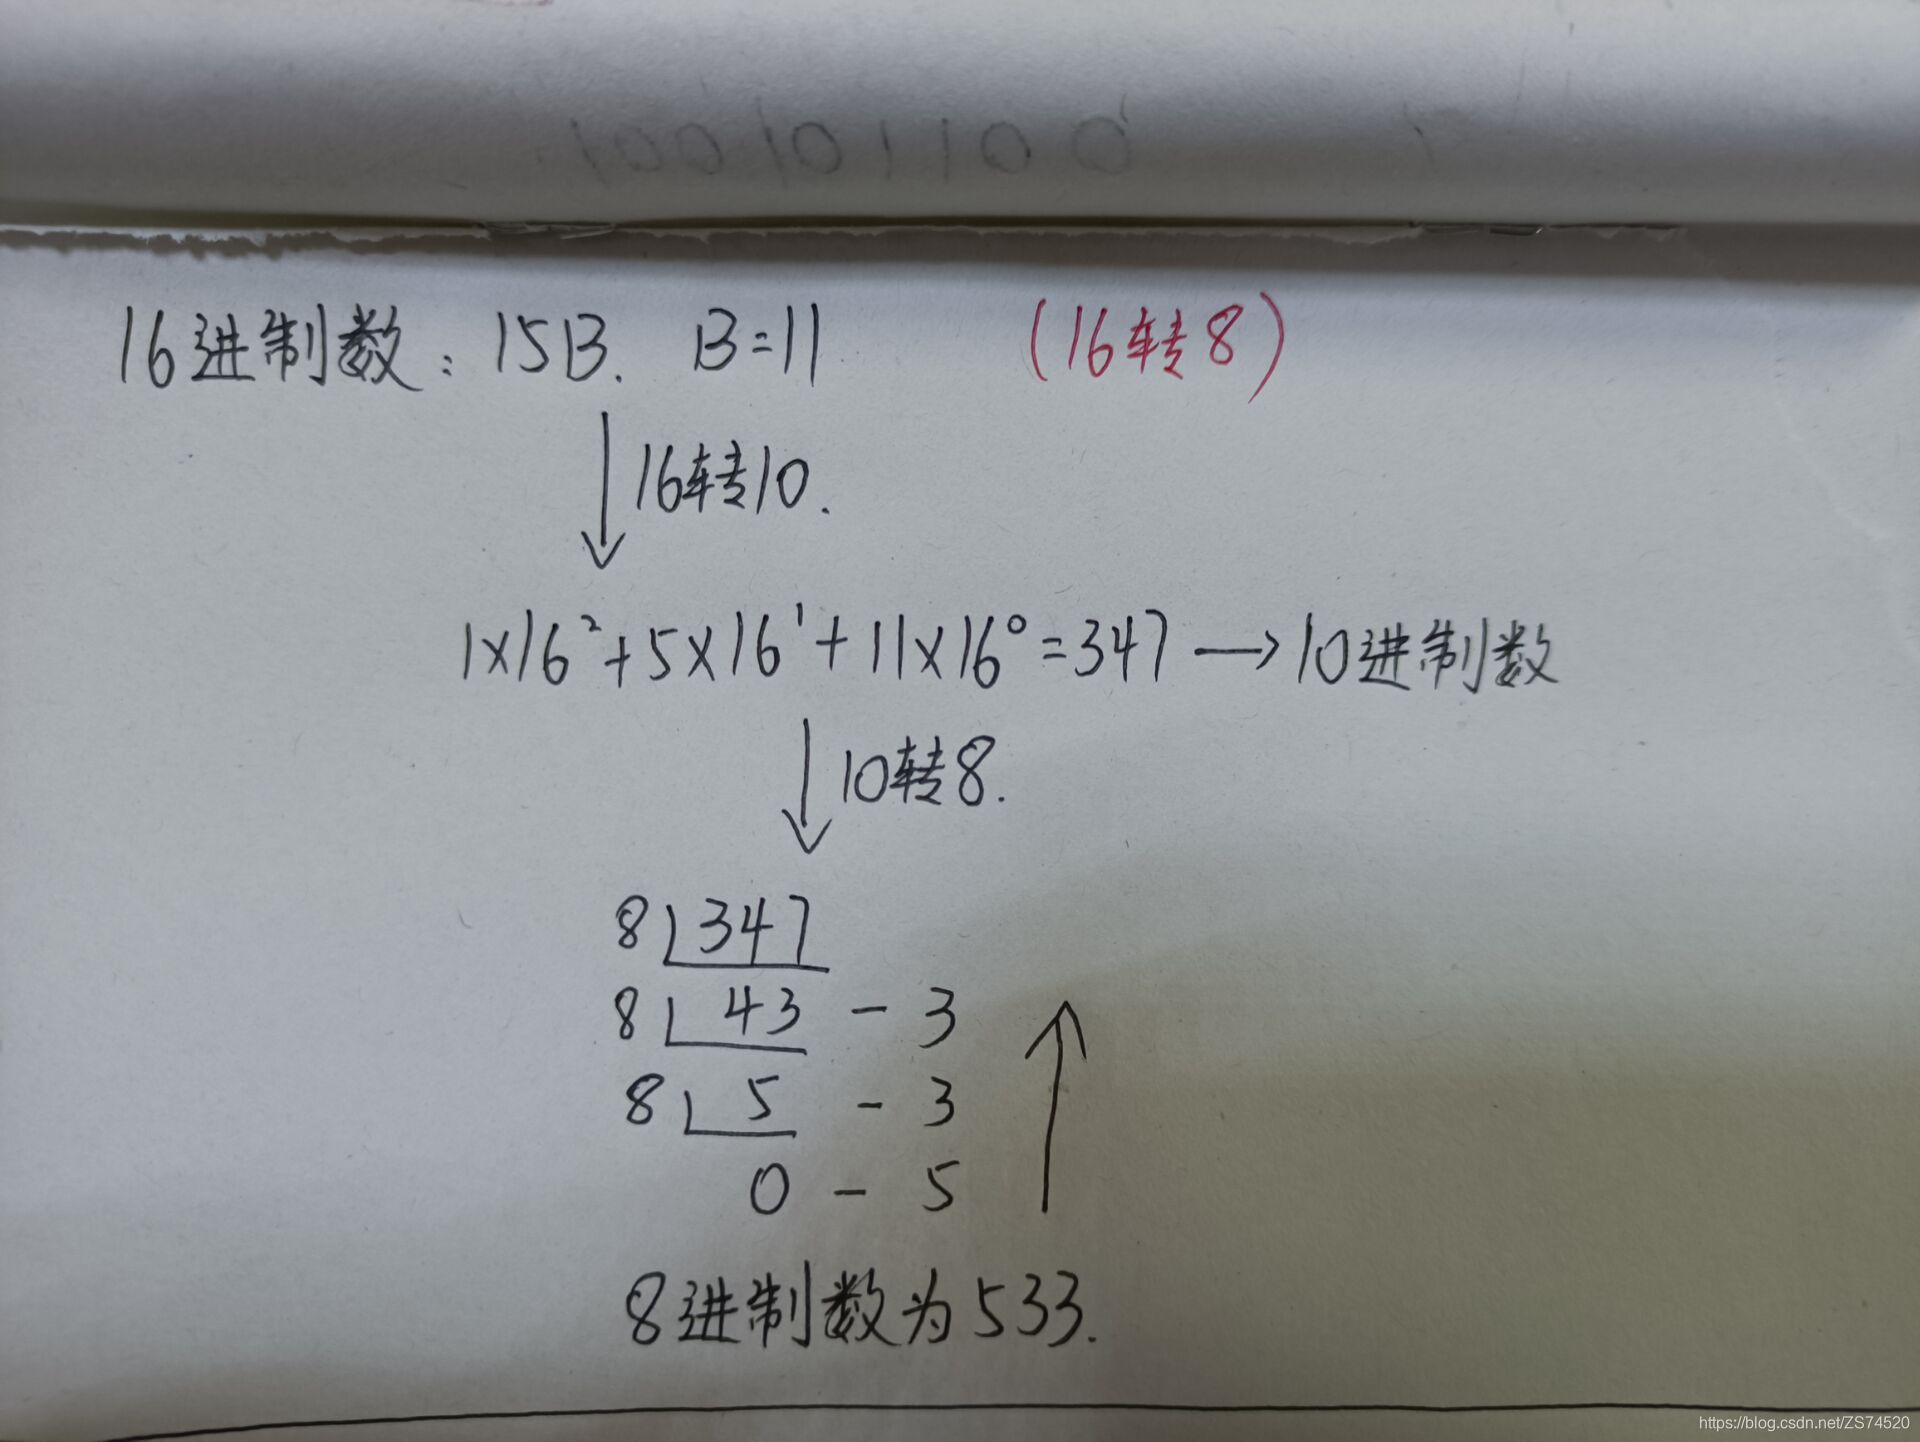 16进制数：15B. B=11 (16转8)
16转10.
1×16²+5×16¹+11×16⁰=347→10进制数
10转8.
8 347
8 43 - 3
8 5 - 3
0 - 5
8进制数为533.
https://blog.csdn.net/ZS74520